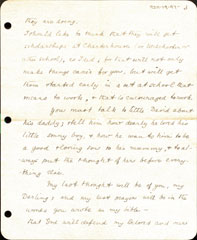 they are away.
I should like to think that they will get
scholarships at Charterhouse (or Winchester
this school), so Dad's, for that will not only
make things easier for you, but will get
them started early in a at a school that
means to work, & that is encouraged to work.
you must talk to little David about
his daddy; tell him how dearly he loved his
little sonny boy, & how he wants him to be
a good loving son to his mummy, & to al-
ways put the thought of her before every
thing else.
My last thought will be of you, my
Darling, and my last prayer will be in the
words you wrote in my letter —
that God will defend my beloved and